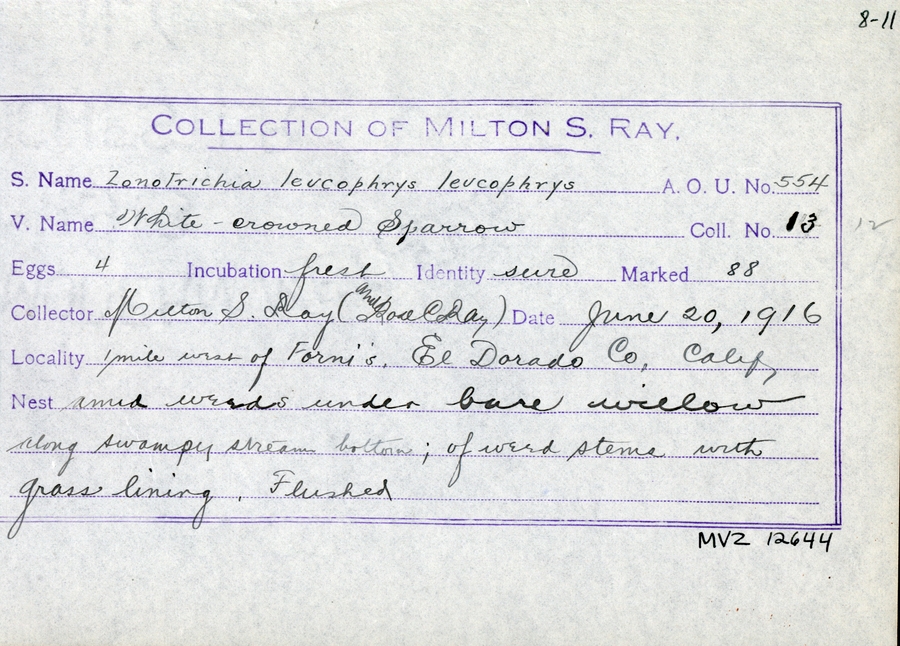 8-11
COLLECTION OF MILTON S. RAY.
S. Name Zonotrichia leucophrys leucophrys A. O. U. No. 554
V. Name White-crowned Sparrow Coll. No. 13 12
Eggs 4 Incubation fresh Identity sure Marked 88
Collector Milton S. Ray (and Rose C Ray) Date June 20, 1916
Locality 1 mile west of Forni's, El Dorado Co, Calif,
Nest amid weeds under bare willow
along swampy stream bottom; of weed stems with
grass lining. Flushed
MVZ 12644